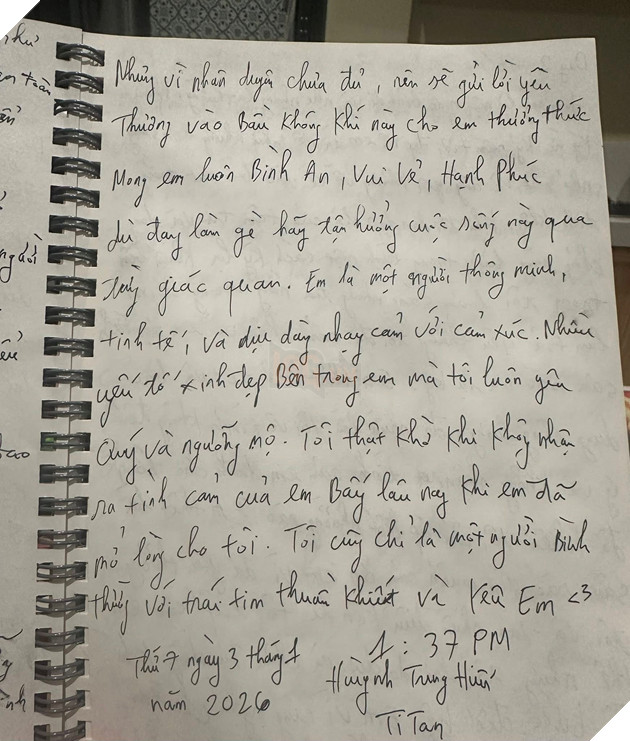 Nhưng vì nhân duyên chưa đủ, nên sẽ gửi lời yêu
Thương vào Bầu Không Khí này cho em thưởng thức
Mong em luôn Bình An, Vui Vẻ, Hạnh Phúc
dù đang làm gì hãy tận hưởng cuộc sống này qua
từng giác quan. Em là một người thông minh,
tinh tế, và dịu dàng nhạy cảm với cảm xúc. Nhiều
yếu tố xinh đẹp Bên trong em mà tôi luôn yêu
Quý và ngưỡng mộ. Tôi thật Khờ Khi Không nhận
ra tình cảm của em Bấy lâu nay Khi em đã
mở lòng cho tôi. Tôi cũng chỉ là một người Bình
thường với trái tim thuần Khiết và Yêu Em <3
Thứ 7 ngày 3 tháng 1
năm 2026
1:37 PM
Huỳnh Trung Hiếu
TiTan